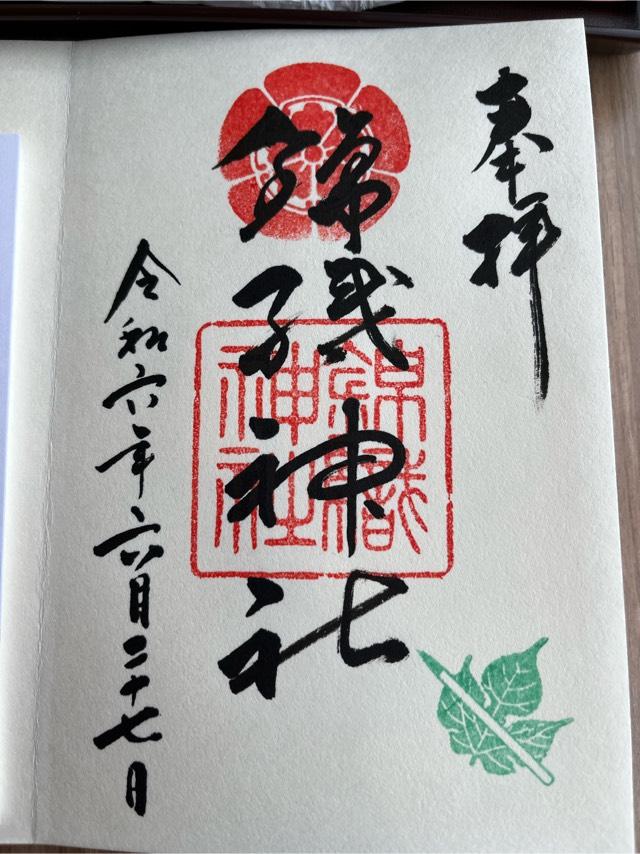 奉拝
錦織神社
錦織神社
令和六年六月二十七日